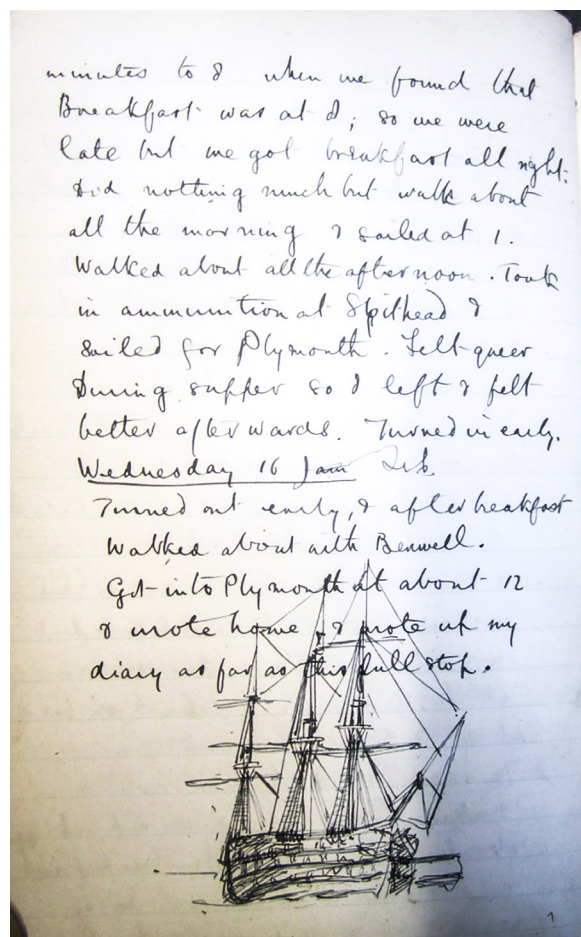 minutes to 8 when we found that
Breakfast was at 8; so we were
late but we got breakfast all right.
Did nothing much but walk about
all the morning & sailed at 1.
Walked about all the afternoon. Took
in ammunition at Spithead &
sailed for Plymouth. Felt queer
During supper so I left & felt
better afterwards. Turned in early.
Wednesday 16 Jan Feb.
Turned out early, & after breakfast
Walked about with Benwell.
Got into Plymouth at about 12
& wrote home, & wrote up my
diary as far as this full stop.
1